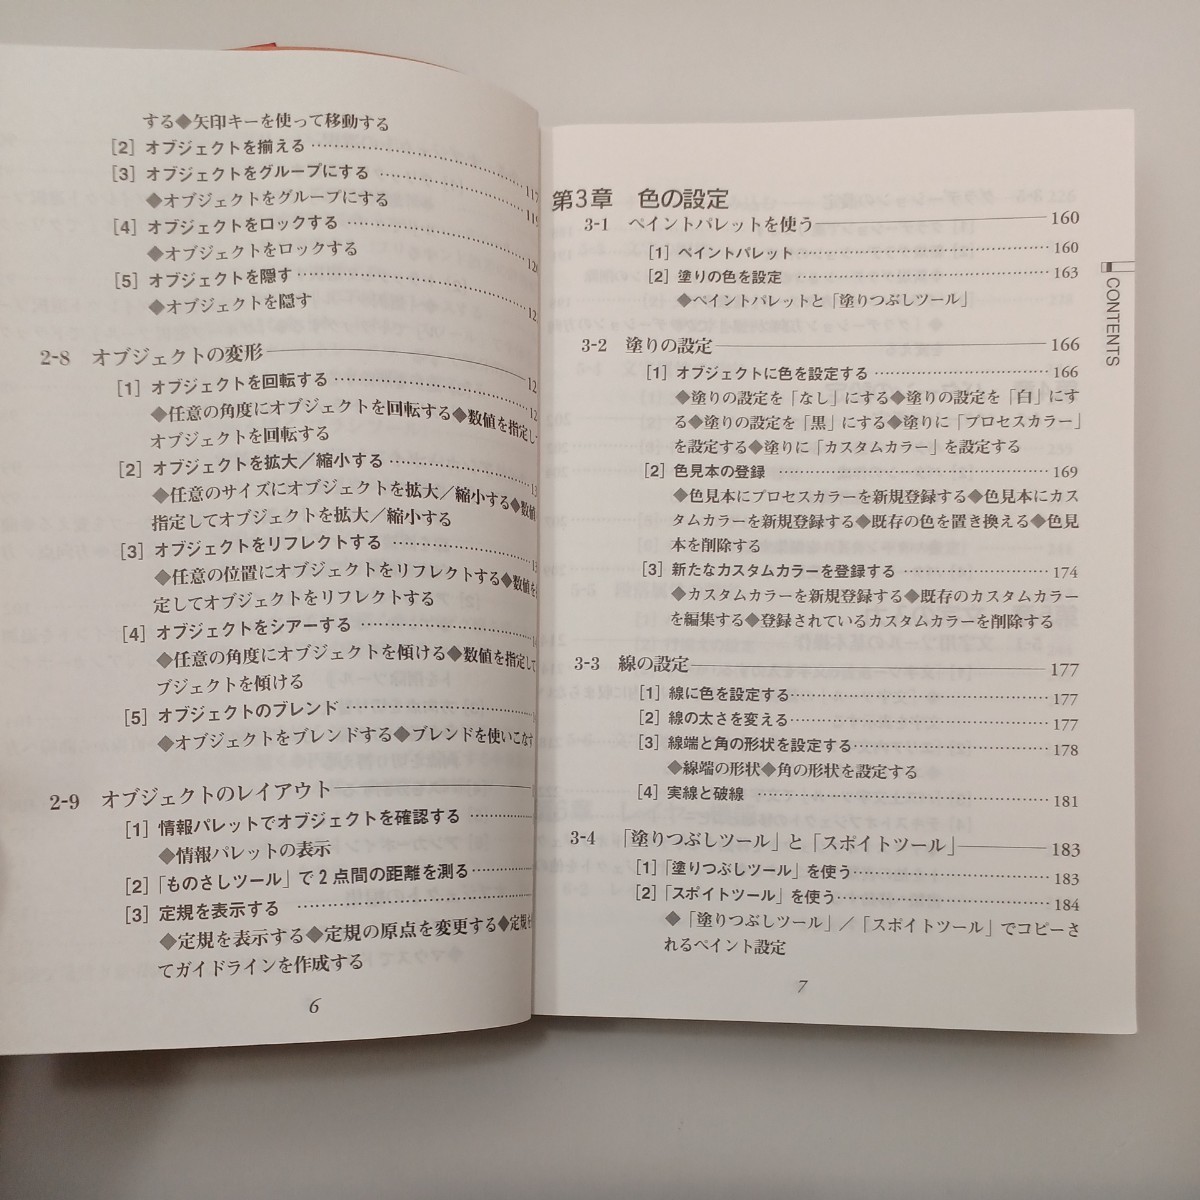 する◆矢印キーを使って移動する
[2] オブジェクトを揃える
[3] オブジェクトをグループにする 117
◆オブジェクトをグループにする 119
[4] オブジェクトをロックする
◆オブジェクトをロックする
[5] オブジェクトを隠す
◆オブジェクトを隠す
2-8 オブジェクトの変形
[1] オブジェクトを回転する
◆任意の角度にオブジェクトを回転する◆数値を指定し
オブジェクトを回転する
[2] オブジェクトを拡大／縮小する
◆任意のサイズにオブジェクトを拡大／縮小する◆数値
指定してオブジェクトを拡大／縮小する
[3] オブジェクトをリフレクトする
◆任意の位置にオブジェクトをリフレクトする◆数値を
定してオブジェクトをリフレクトする
[4] オブジェクトをシアーする
◆任意の角度にオブジェクトを傾ける◆数値を指定して
ブジェクトを傾ける
[5] オブジェクトのブレンド
◆オブジェクトをブレンドする◆ブレンドを使いこなす
2-9 オブジェクトのレイアウト
[1] 情報パレットでオブジェクトを確認する
◆情報パレットの表示
[2]「ものさしツール」で2点間の距離を測る
[3] 定規を表示する
◆定規を表示する◆定規の原点を変更する◆定規を
てガイドラインを作成する
6
第3章 色の設定
3-1 ペイントパレットを使う 160
[1] ペイントパレット 160
[2] 塗りの色を設定 163
◆ペイントパレットと「塗りつぶしツール」
3-2 塗りの設定 166
[1] オブジェクトに色を設定する 166
◆塗りの設定を「なし」にする◆塗りの設定を「白」にす
る◆塗りの設定を「黒」にする◆塗りに「プロセスカラー」
を設定する◆塗りに「カスタムカラー」を設定する
[2] 色見本の登録 169
◆色見本にプロセスカラーを新規登録する◆色見本にカス
タムカラーを新規登録する◆既存の色を置き換える◆色見
本を削除する
[3] 新たなカスタムカラーを登録する 174
◆カスタムカラーを新規登録する◆既存のカスタムカラー
を編集する◆登録されているカスタムカラーを削除する
3-3 線の設定 177
[1] 線に色を設定する 177
[2] 線の太さを変える 177
[3] 線端と角の形状を設定する 178
◆線端の形状◆角の形状を設定する
[4] 実線と破線 181
3-4 「塗りつぶしツール」と「スポイトツール」 183
[1]「塗りつぶしツール」を使う 183
[2]「スポイトツール」を使う 184
◆「塗りつぶしツール」／「スポイトツール」でコピーさ
れるペイント設定
7
CONTENTS